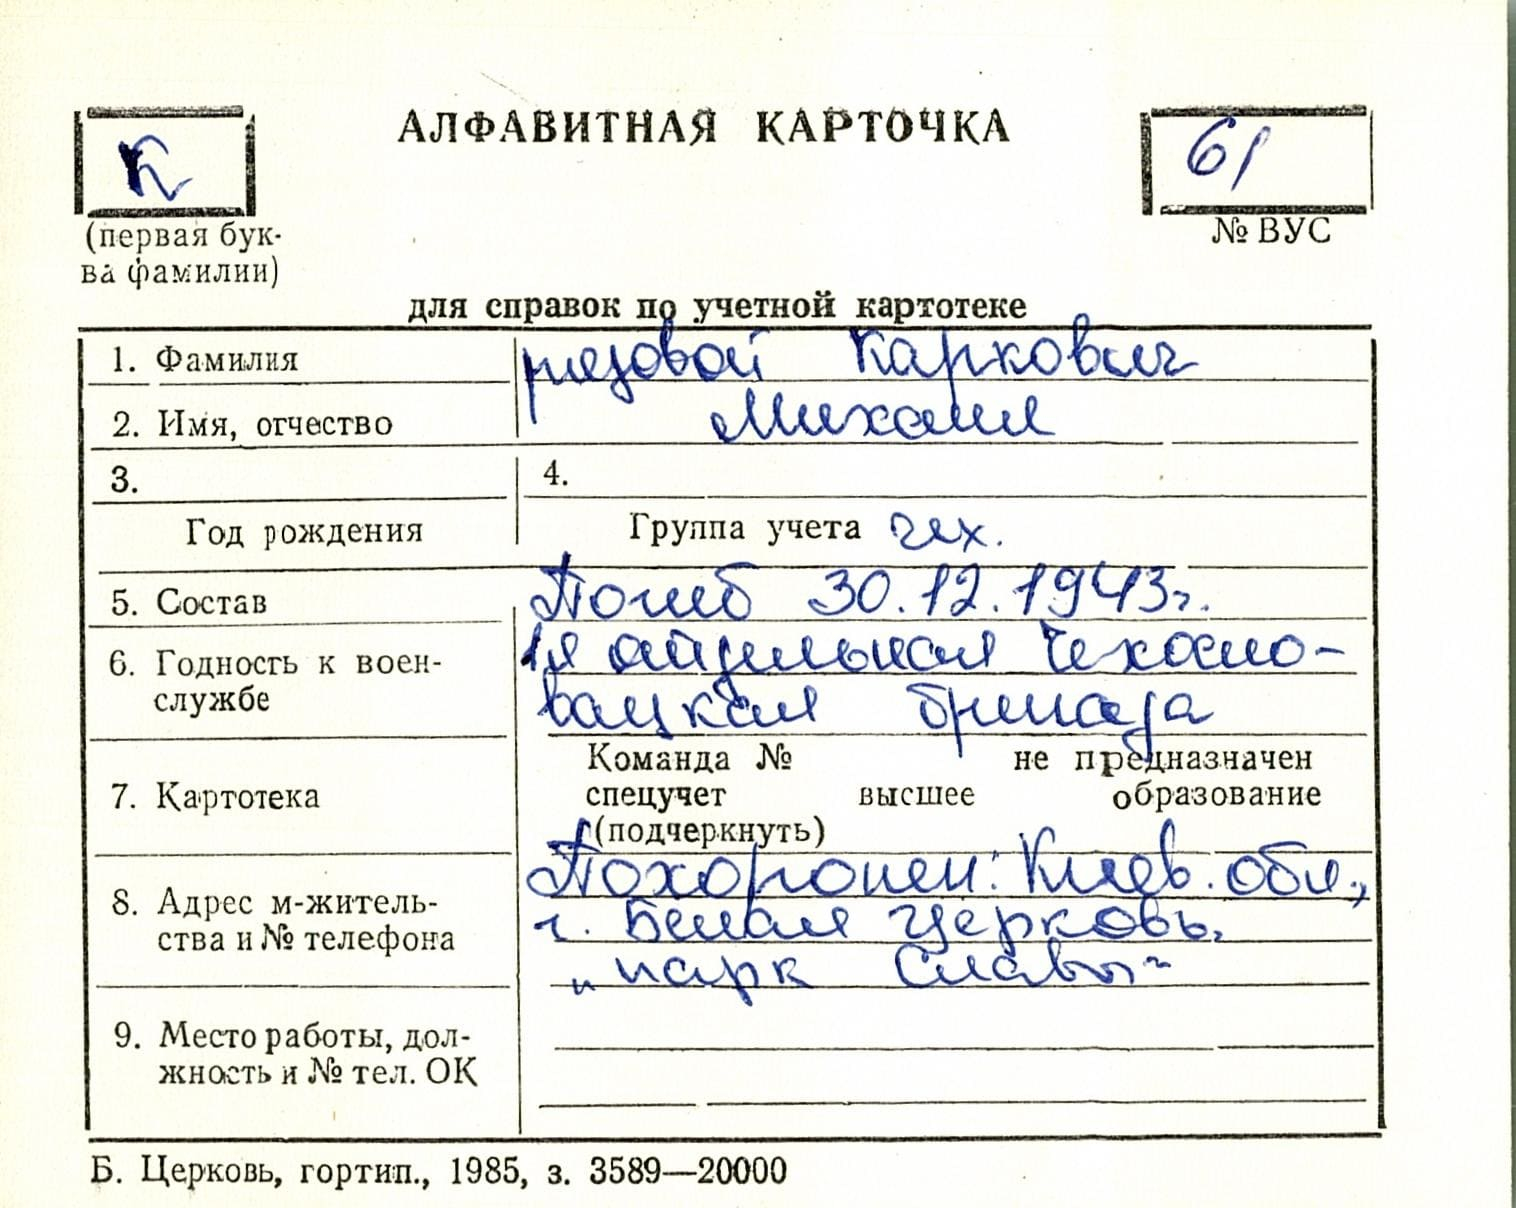 К
АЛФАВИТНАЯ КАРТОЧКА
61
(первая бук-
ва фамилии)
№ ВУС
для справок по учетной картотеке
1. Фамилия рядовой Каркович
2. Имя, отчество Михаил
3.
4.
Год рождения
Группа учета чех.
5. Состав Погиб 30.12.1943г.
6. Годность к воен- 1я отдельная Чехосло-
службе вацкая бригада
Команда № не предназначен
7. Картотека спецучет высшее образование
(подчеркнуть)
Похоронен: Киев. обл.,
8. Адрес м-житель- г. Белая Церковь,
ства и № телефона „парк Славы“
9. Место работы, дол-
жность и № тел. ОК
Б. Церковь, гортип., 1985, з. 3589—20000